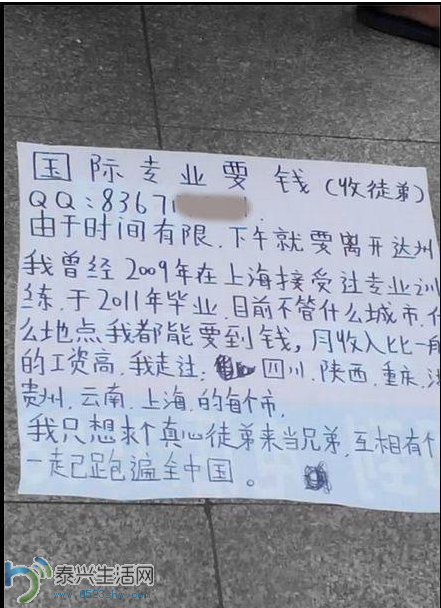 国际专业要钱(收徒弟)
QQ:8367
由于时间有限.下午就要离开达州
我曾经2009年在上海接受过专业训
练.于2011年毕业.目前不管什么城市.什
么地点我都能要到钱,月收入比一般
的工资高.我走过:四川.陕西.重庆.
贵州.云南.上海.的每个市.
我只想求个真心徒弟来当兄弟.互相有个
一起跑遍全中国。
泰兴生活网